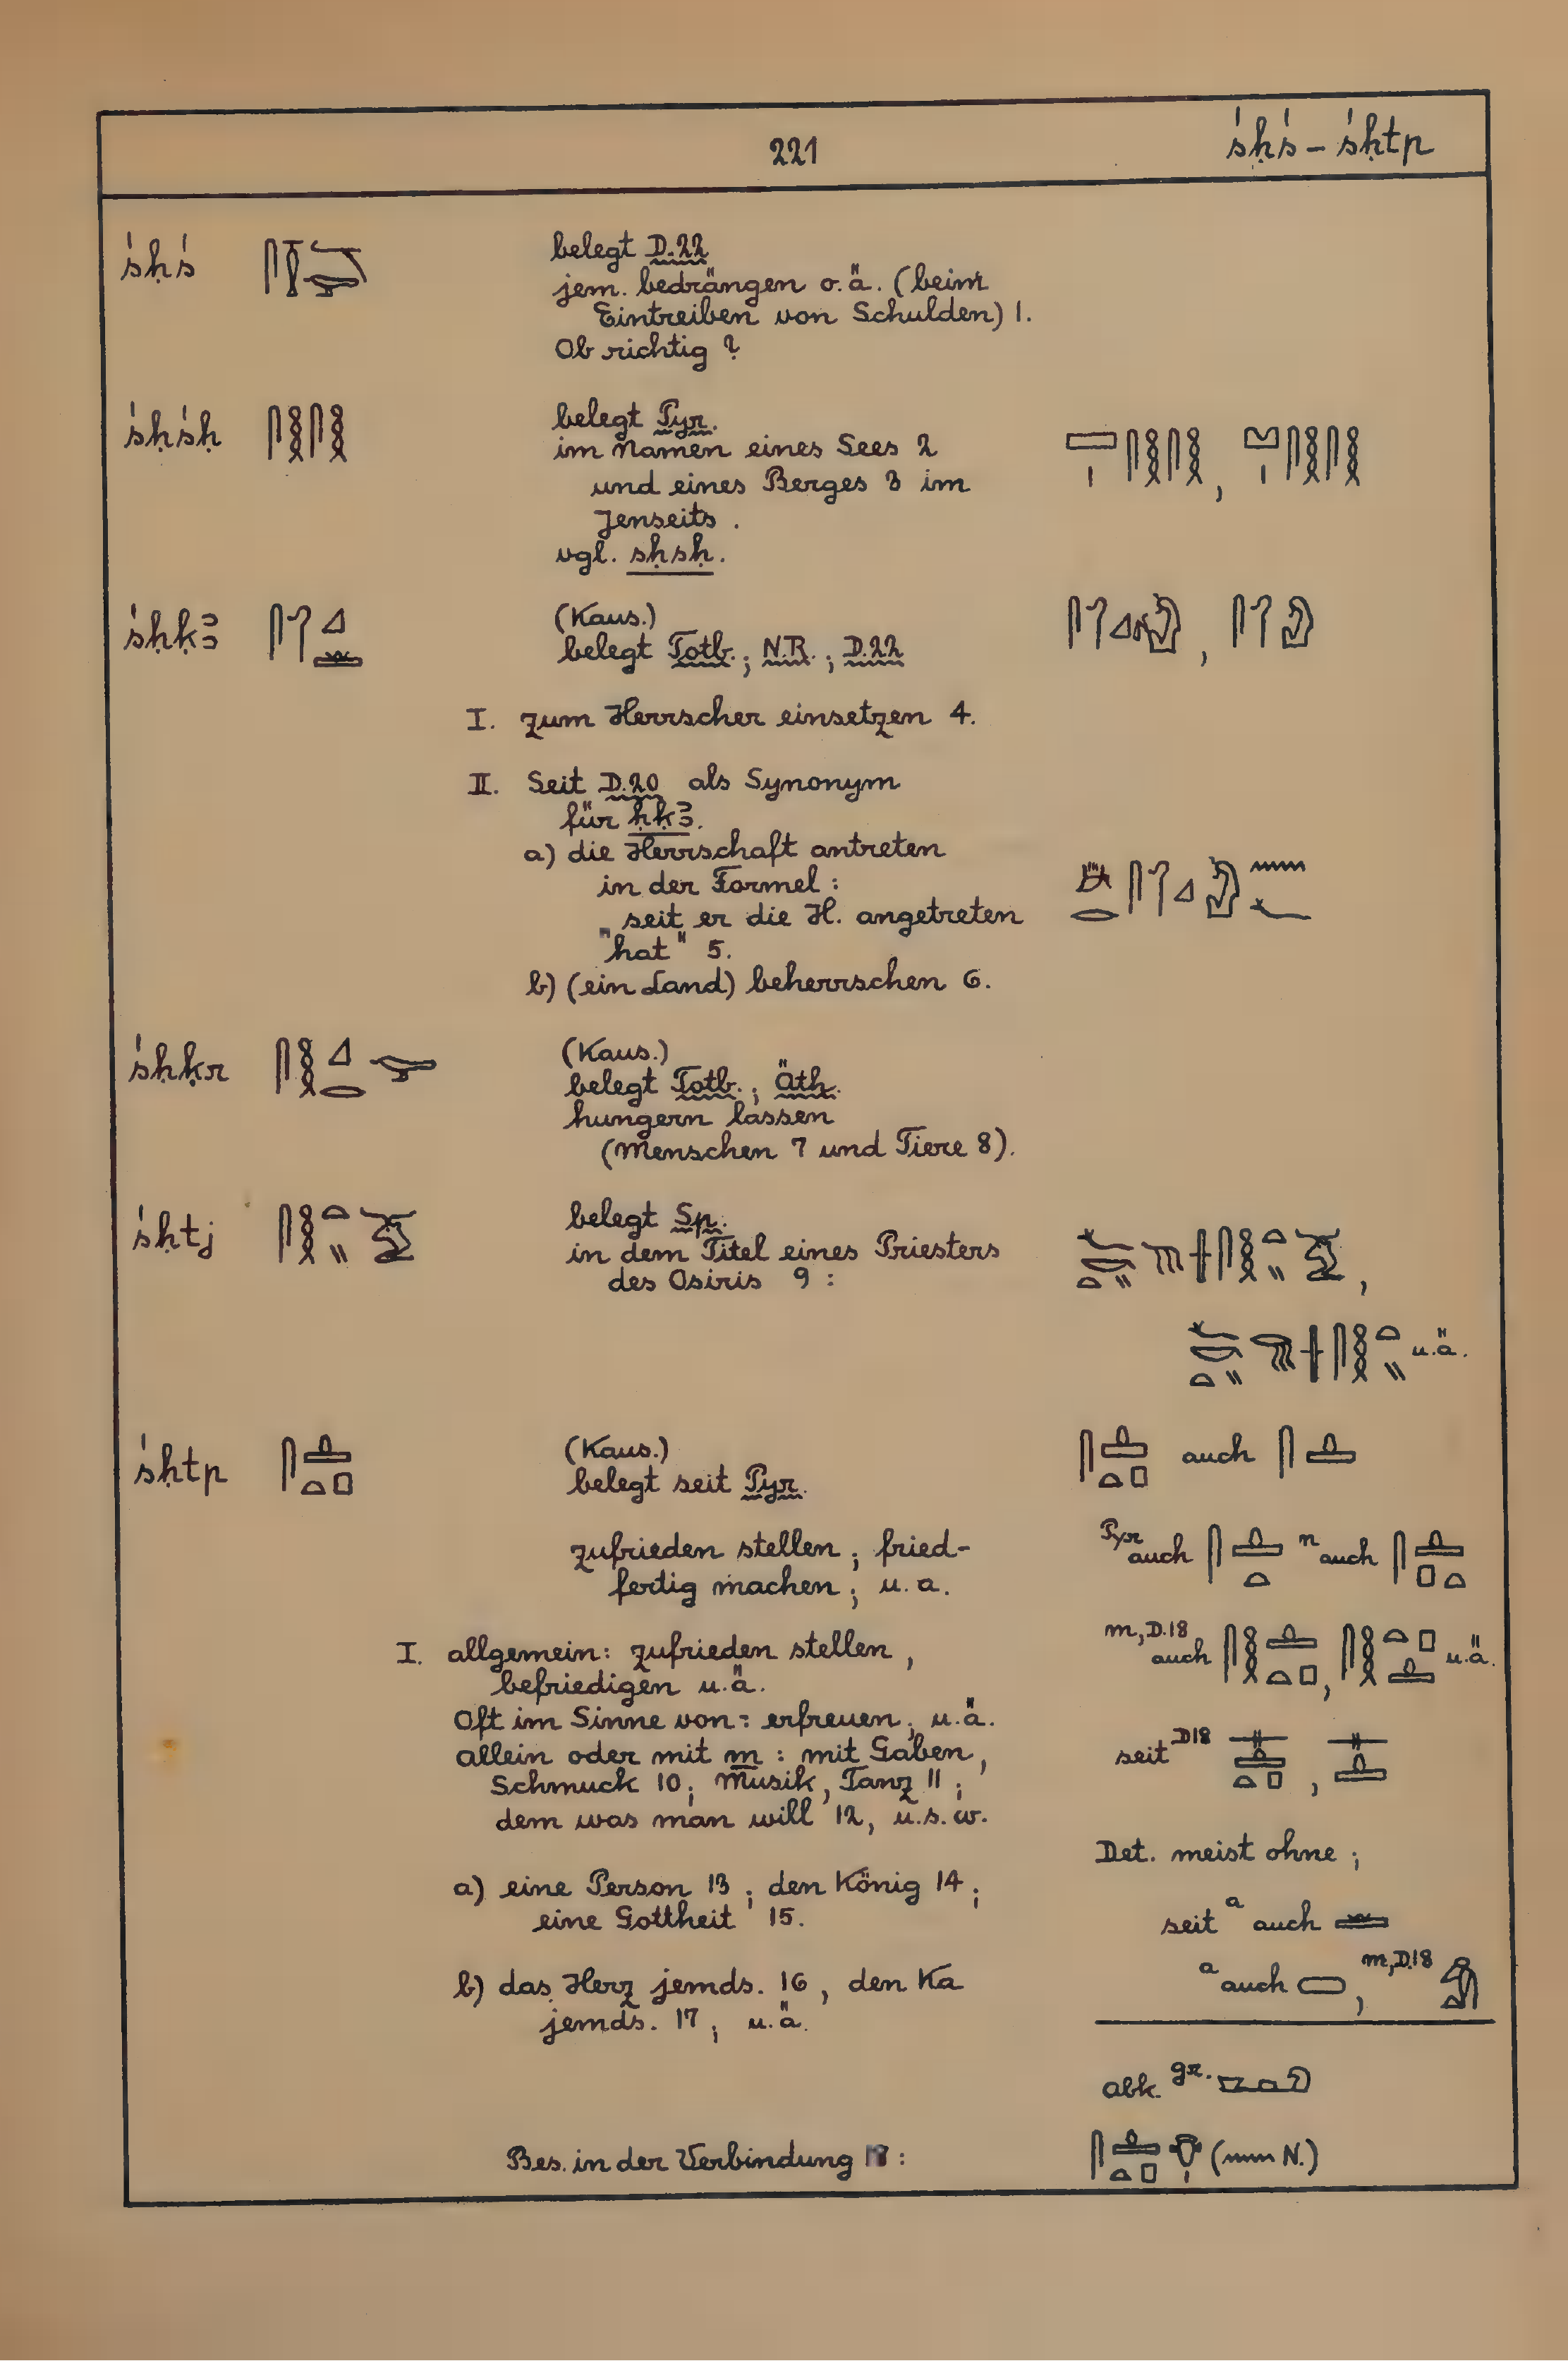 221
śḥś – śḥtp
śḥś
belegt D.22
jem. bedrängen o.ä. (beim
Eintreiben von Schulden) 1.
Ob richtig ?
śḥśḥ
belegt Pyr.
im Namen eines Sees 2
und eines Berges 3 im
Jenseits .
vgl. sḥsḥ.
śḥḳꜣ
(Kaus.)
belegt Totb. ; N.R. ; D.22
I. zum Herrscher einsetzen 4.
II. Seit D.20 als Synonym
für ḥḳꜣ.
a) die Herrschaft antreten
in der Formel :
„seit er die H. angetreten
hat" 5.
b) (ein Land) beherrschen 6.
śḥḳr
(Kaus.)
belegt Totb. ; Äth.
hungern lassen
(Menschen 7 und Tiere 8).
śḥtj
belegt Sp.
in dem Titel eines Priesters
des Osiris 9 :
u.ä.
śḥtp
(Kaus.)
belegt seit Pyr.
auch
zufrieden stellen ; fried-
fertig machen ; u. a.
Pyr auch n auch
I. allgemein: zufrieden stellen ,
befriedigen u.ä.
m, D.18 auch , u.ä.
Oft im Sinne von : erfreuen ; u.ä.
allein oder mit m : mit Gaben ,
Schmuck 10 ; Musik , Tanz 11 ;
dem was man will 12, u.s.w.
seit D18 ,
Det. meist ohne ;
a) eine Person 13 ; den König 14 ;
eine Gottheit 15.
seit a auch
a auch , m, D.18
b) das Herz jemds. 16 , den Ka
jemds. 17 ; u.ä.
abk. gr.
Bes. in der Verbindung 18 :
( N.)